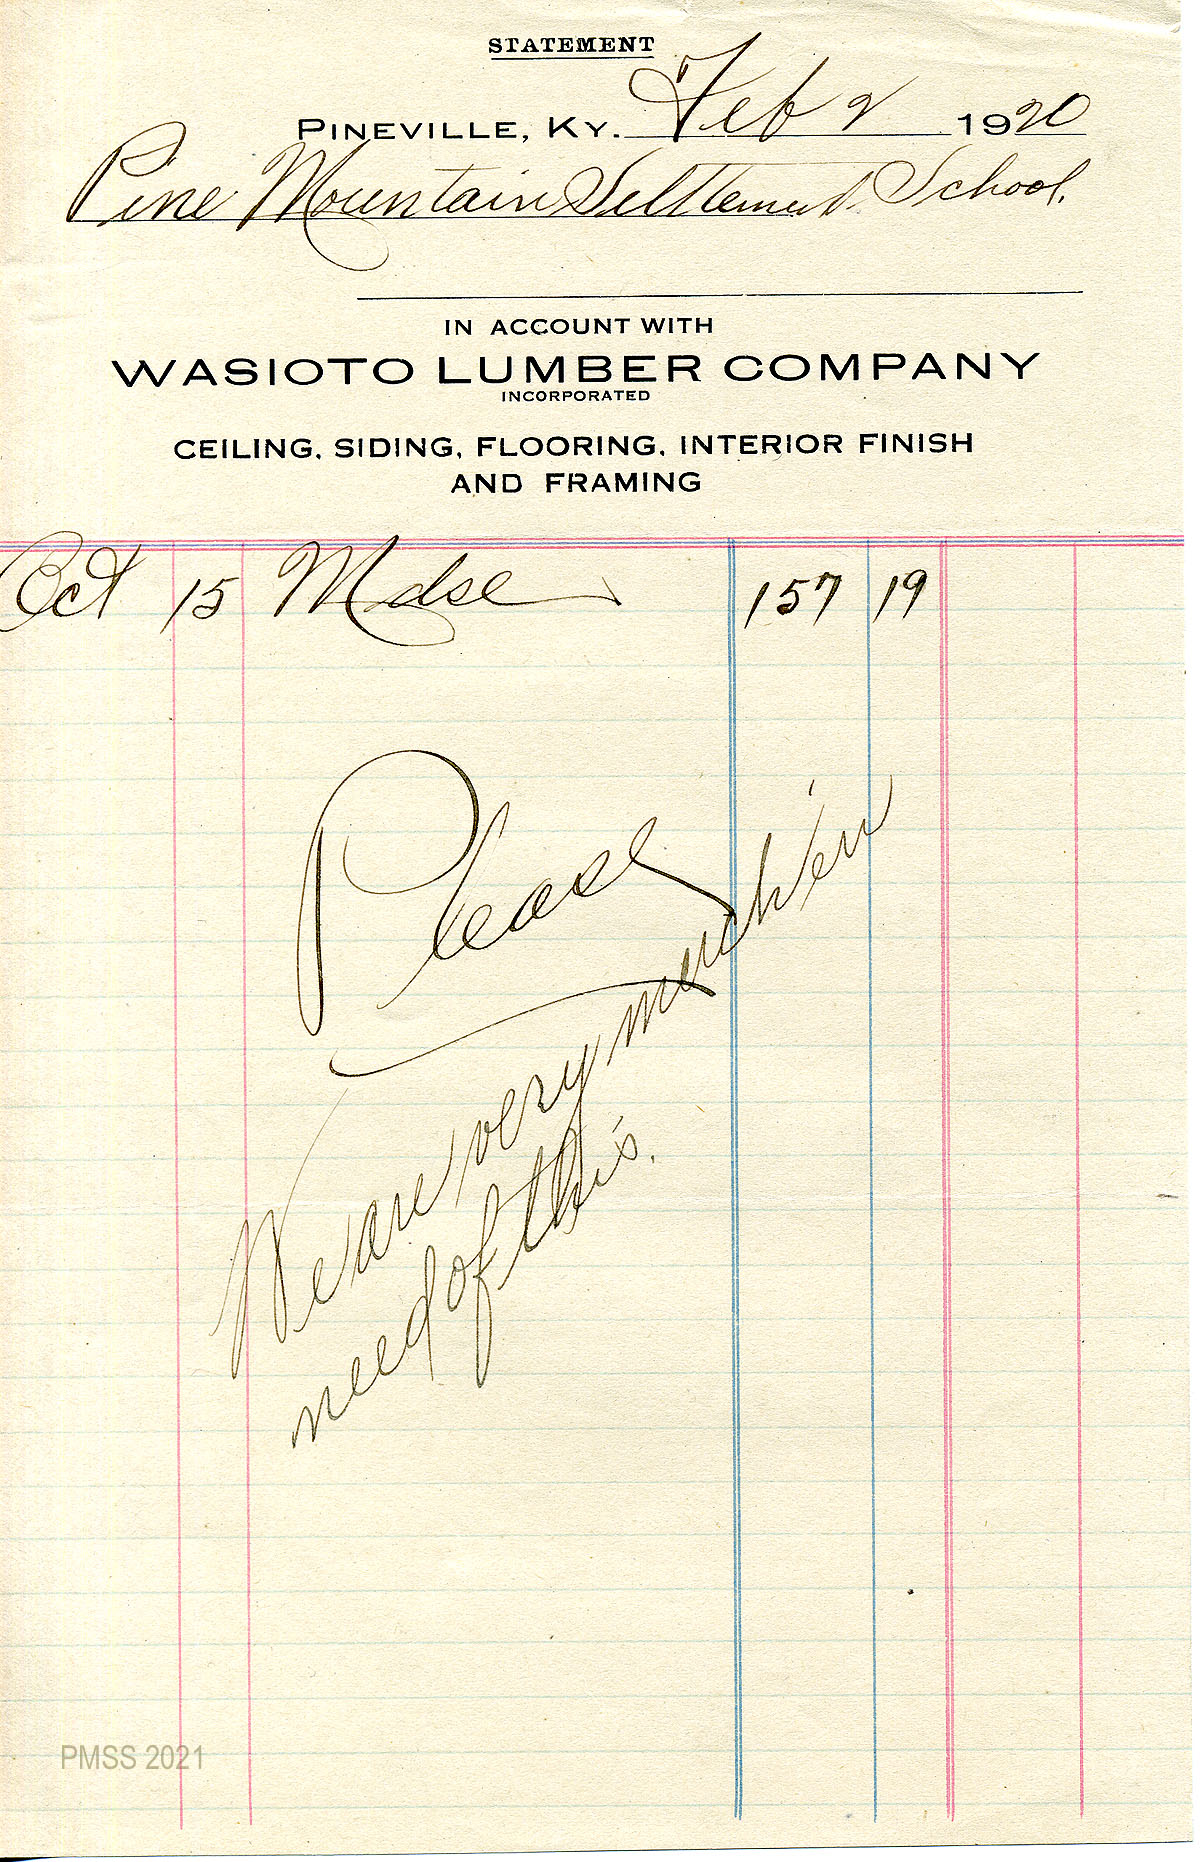 STATEMENT
PINEVILLE, KY. Feb 2 1920
Pine Mountain Settlement School.
IN ACCOUNT WITH
WASIOTO LUMBER COMPANY
INCORPORATED
CEILING, SIDING, FLOORING, INTERIOR FINISH
AND FRAMING
Oct 15 Mdse 157 19
Please
We are very much in
need of this.
PMSS 2021